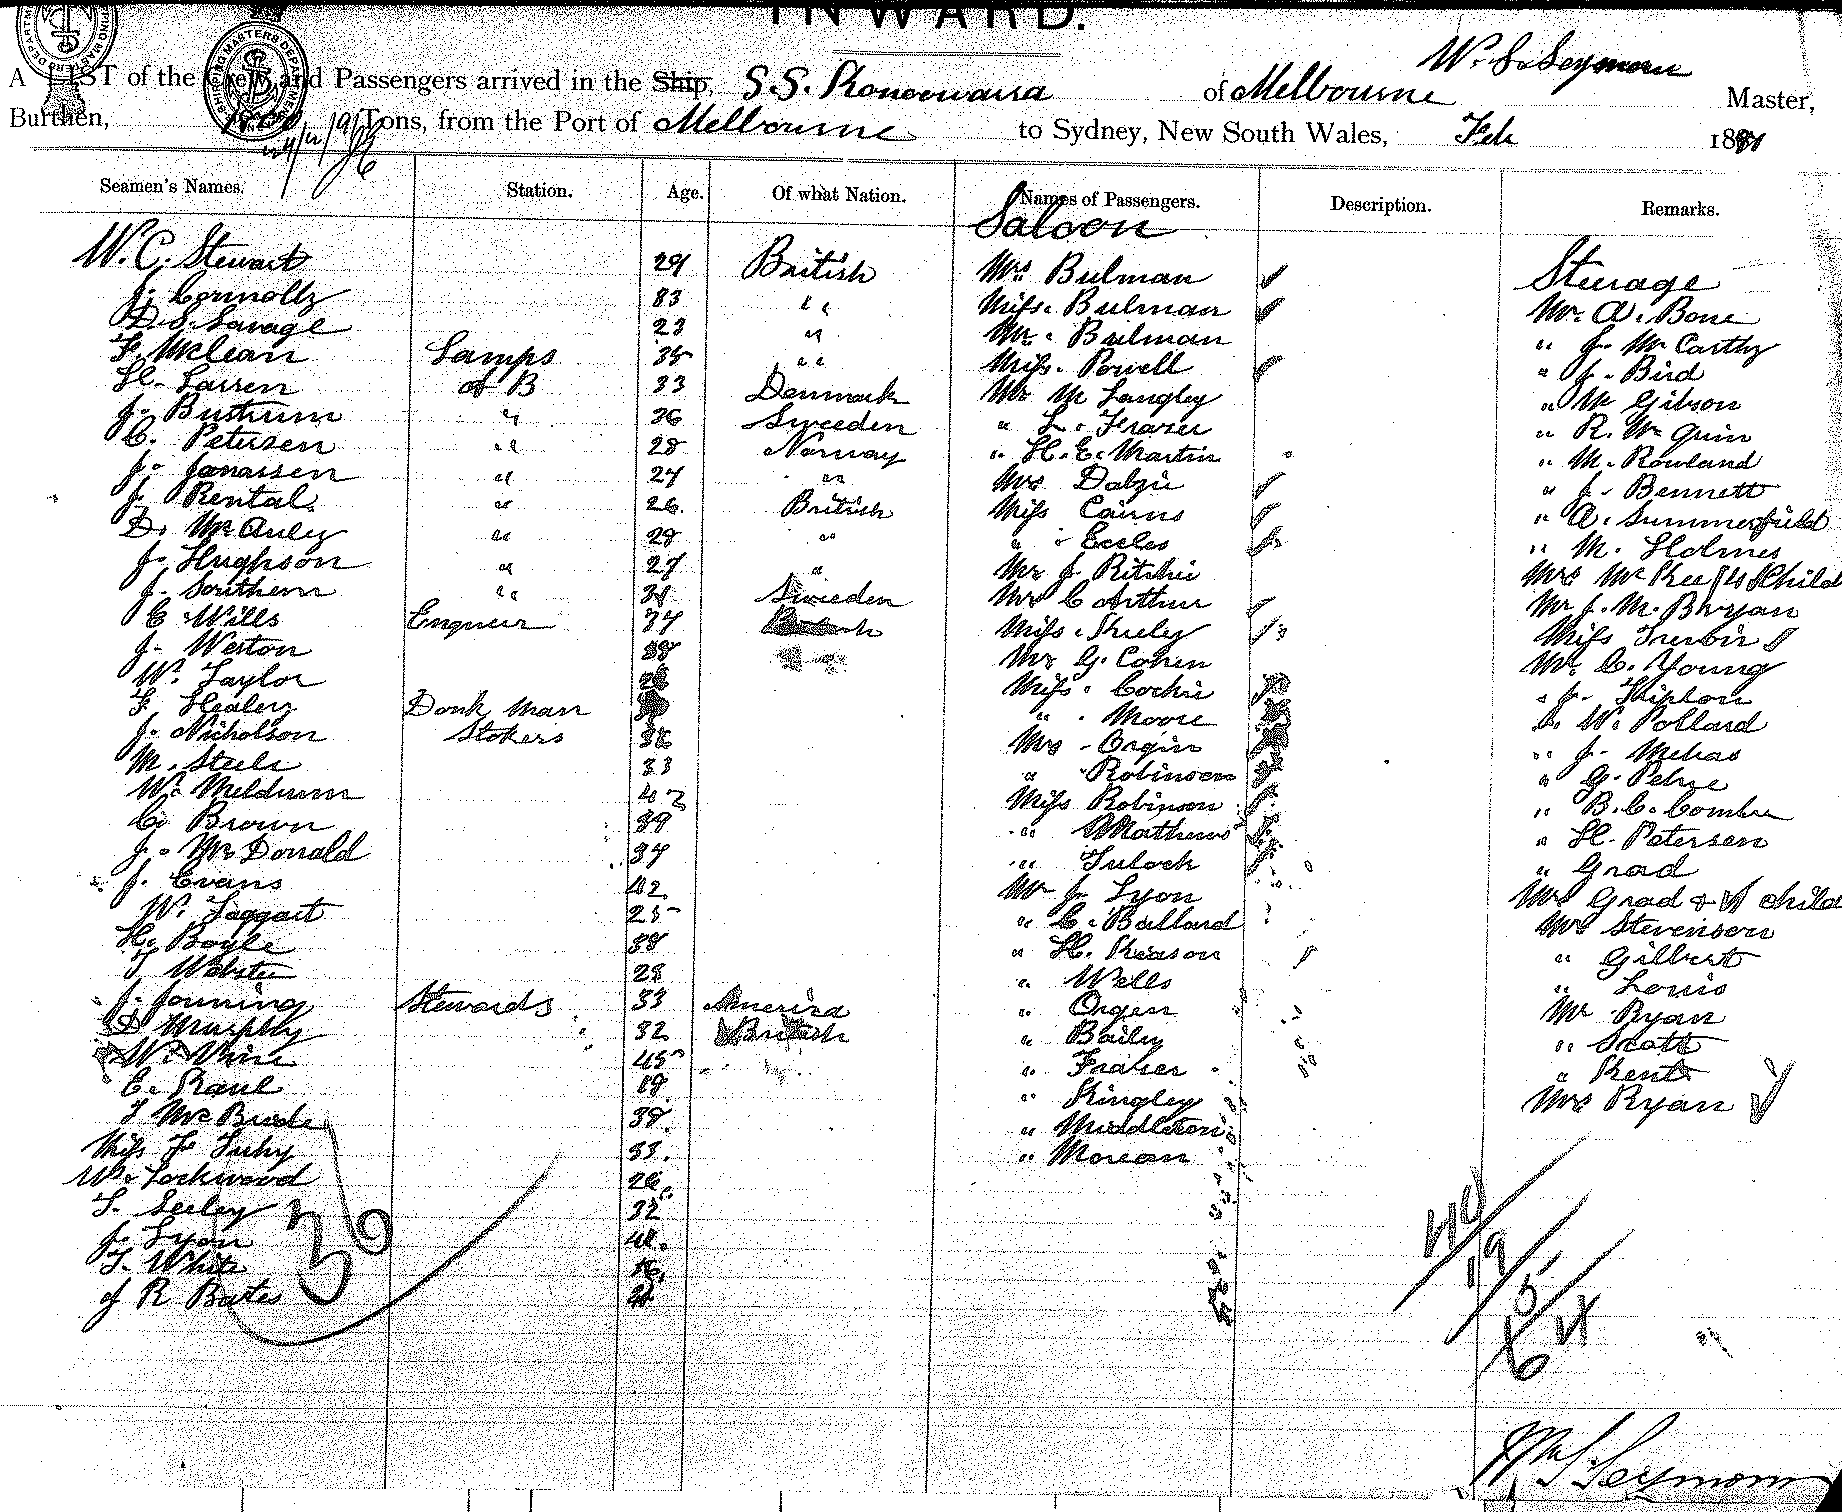 INWARD.
W. S. Seymour
A LIST of the Crew and Passengers arrived in the Ship, S.S. Konoowarra of Melbourne Master,
Burthen, Tons, from the Port of Melbourne to Sydney, New South Wales, Feb 1891
Seamen's Names. Station. Age. Of what Nation. Names of Passengers. Description. Remarks.
Saloon
W. C. Stewart 29 British Mrs Bulman Steerage
J. Connolly 33 " " Miss. Bulman Mr. A. Bone
D. S. Savage 23 " Mr. Bulman " J. McCarthy
F. McLean Lamps 35 " " Miss. Powell " J. Bird
H. Larsen A B 33 Denmark Mr M Langley " M Gibson
J. Bustrum " 36 Sweeden " L. Frazer " R. Mc
C. Petersen " 28 Norway " H. E. Martin " M. Rowland
J. Janassen " 27 " Mrs " J. Bennett
J. Rental " 26. British Miss Cairns " A. Summerfield
D. McAuley " 29 " " Eccles " M. Holmes
J. Hughson " 27 " Mr J. Ritchie Mrs Child
J. Southern " Sweeden Mrs C Arthur Mr J. M. Bryan
C Wills Engineer 37 Miss. Miss
J. Weston 38 Mr G. Cohen Mr. C. Young
W. Taylor Miss. " J.
F. Healey Donk man " Moore " W. Pollard
J. Nicholson Stokers Mrs " J.
M. Steele 33 " Robinson " G.
W. Meldrum 42 Miss Robinson " B. C. Combe
C. Brown 39 " Mathews " H. Petersen
J. McDonald 37 " Tuloch " Grad
J. Evans 42 Mr J. Lyon Mrs Grad & child
W. Taggart 25 " C. Ballard Mrs Stevenson
H. Boyle 38 " H. " Gilbert
T Webster 28 " Wells " Louis
J. Stewards 33 America " Mr Ryan
D Murphy 32 British " Baily " Scott
W. 45 " Frazer " Kent
E. 19 " Kingley Mrs Ryan
T McBride 38. " Middleton
Miss F 33. "
W. Lockwood 26.
T. Seeley 32
J. Lyon
T. White
J R Bates
36
40
19
5
Wm S Seymour